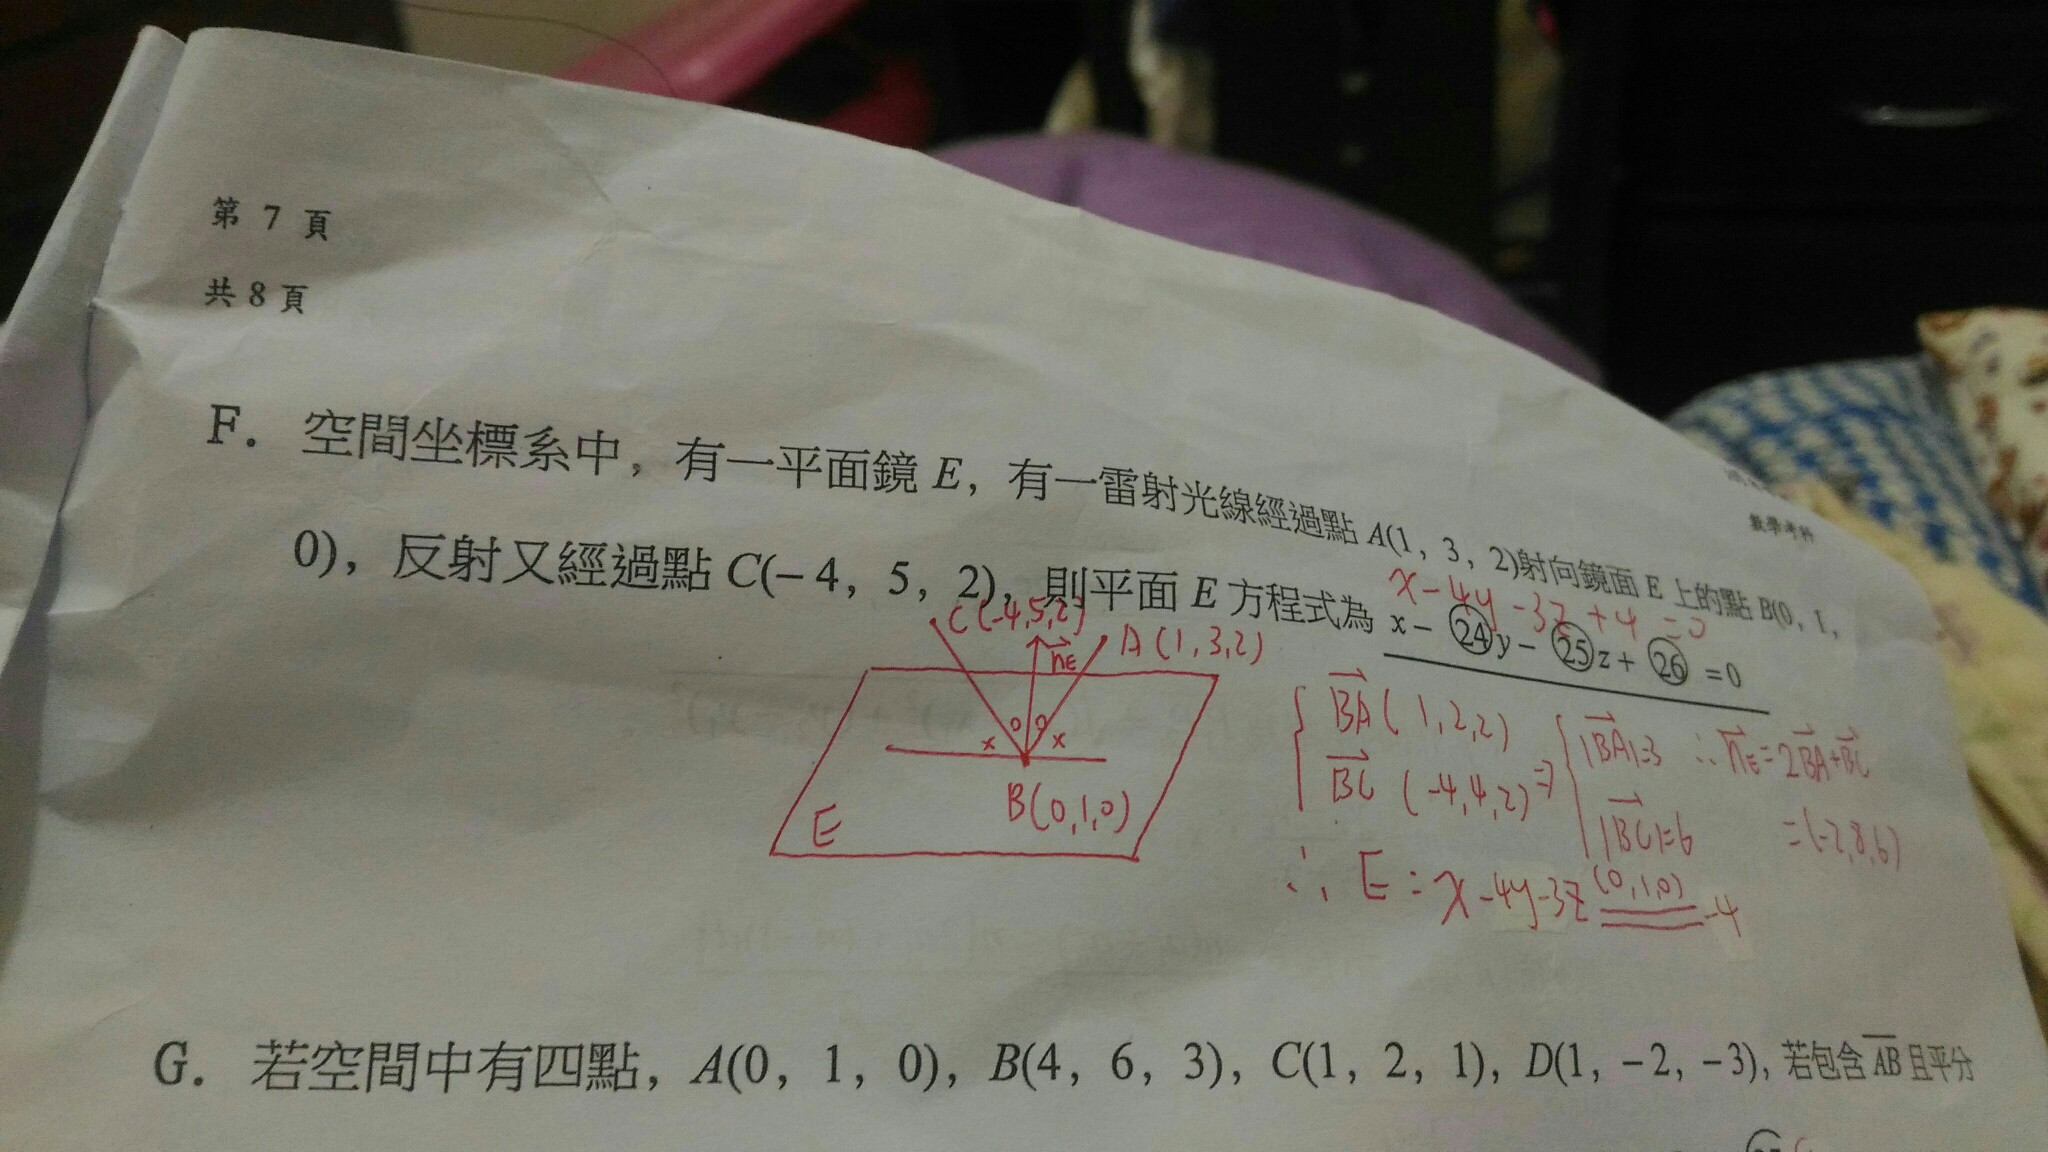 第 7 頁
共 8 頁
數學考科
F. 空間坐標系中，有一平面鏡 E，有一雷射光線經過點 A(1，3，2)射向鏡面 E 上的點 B(0，1，
0)，反射又經過點 C(−4，5，2)，則平面 E 方程式為 x − ㉔ y − ㉕ z + ㉖ = 0
x−4y−3z+4=0
C(-4,5,2)
n⃗E
A(1,3,2)
B(0,1,0)
E
BA⃗ (1,2,2)
BC⃗ (-4,4,2) ⇒
|BA⃗|=3 ∴ n⃗E = 2BA⃗+BC⃗
|BC⃗|=6 =(-2,8,6)
∴ E : x−4y−3z (0,1,0) −4
G. 若空間中有四點，A(0，1，0)，B(4，6，3)，C(1，2，1)，D(1，−2，−3)，若包含 AB 且平分